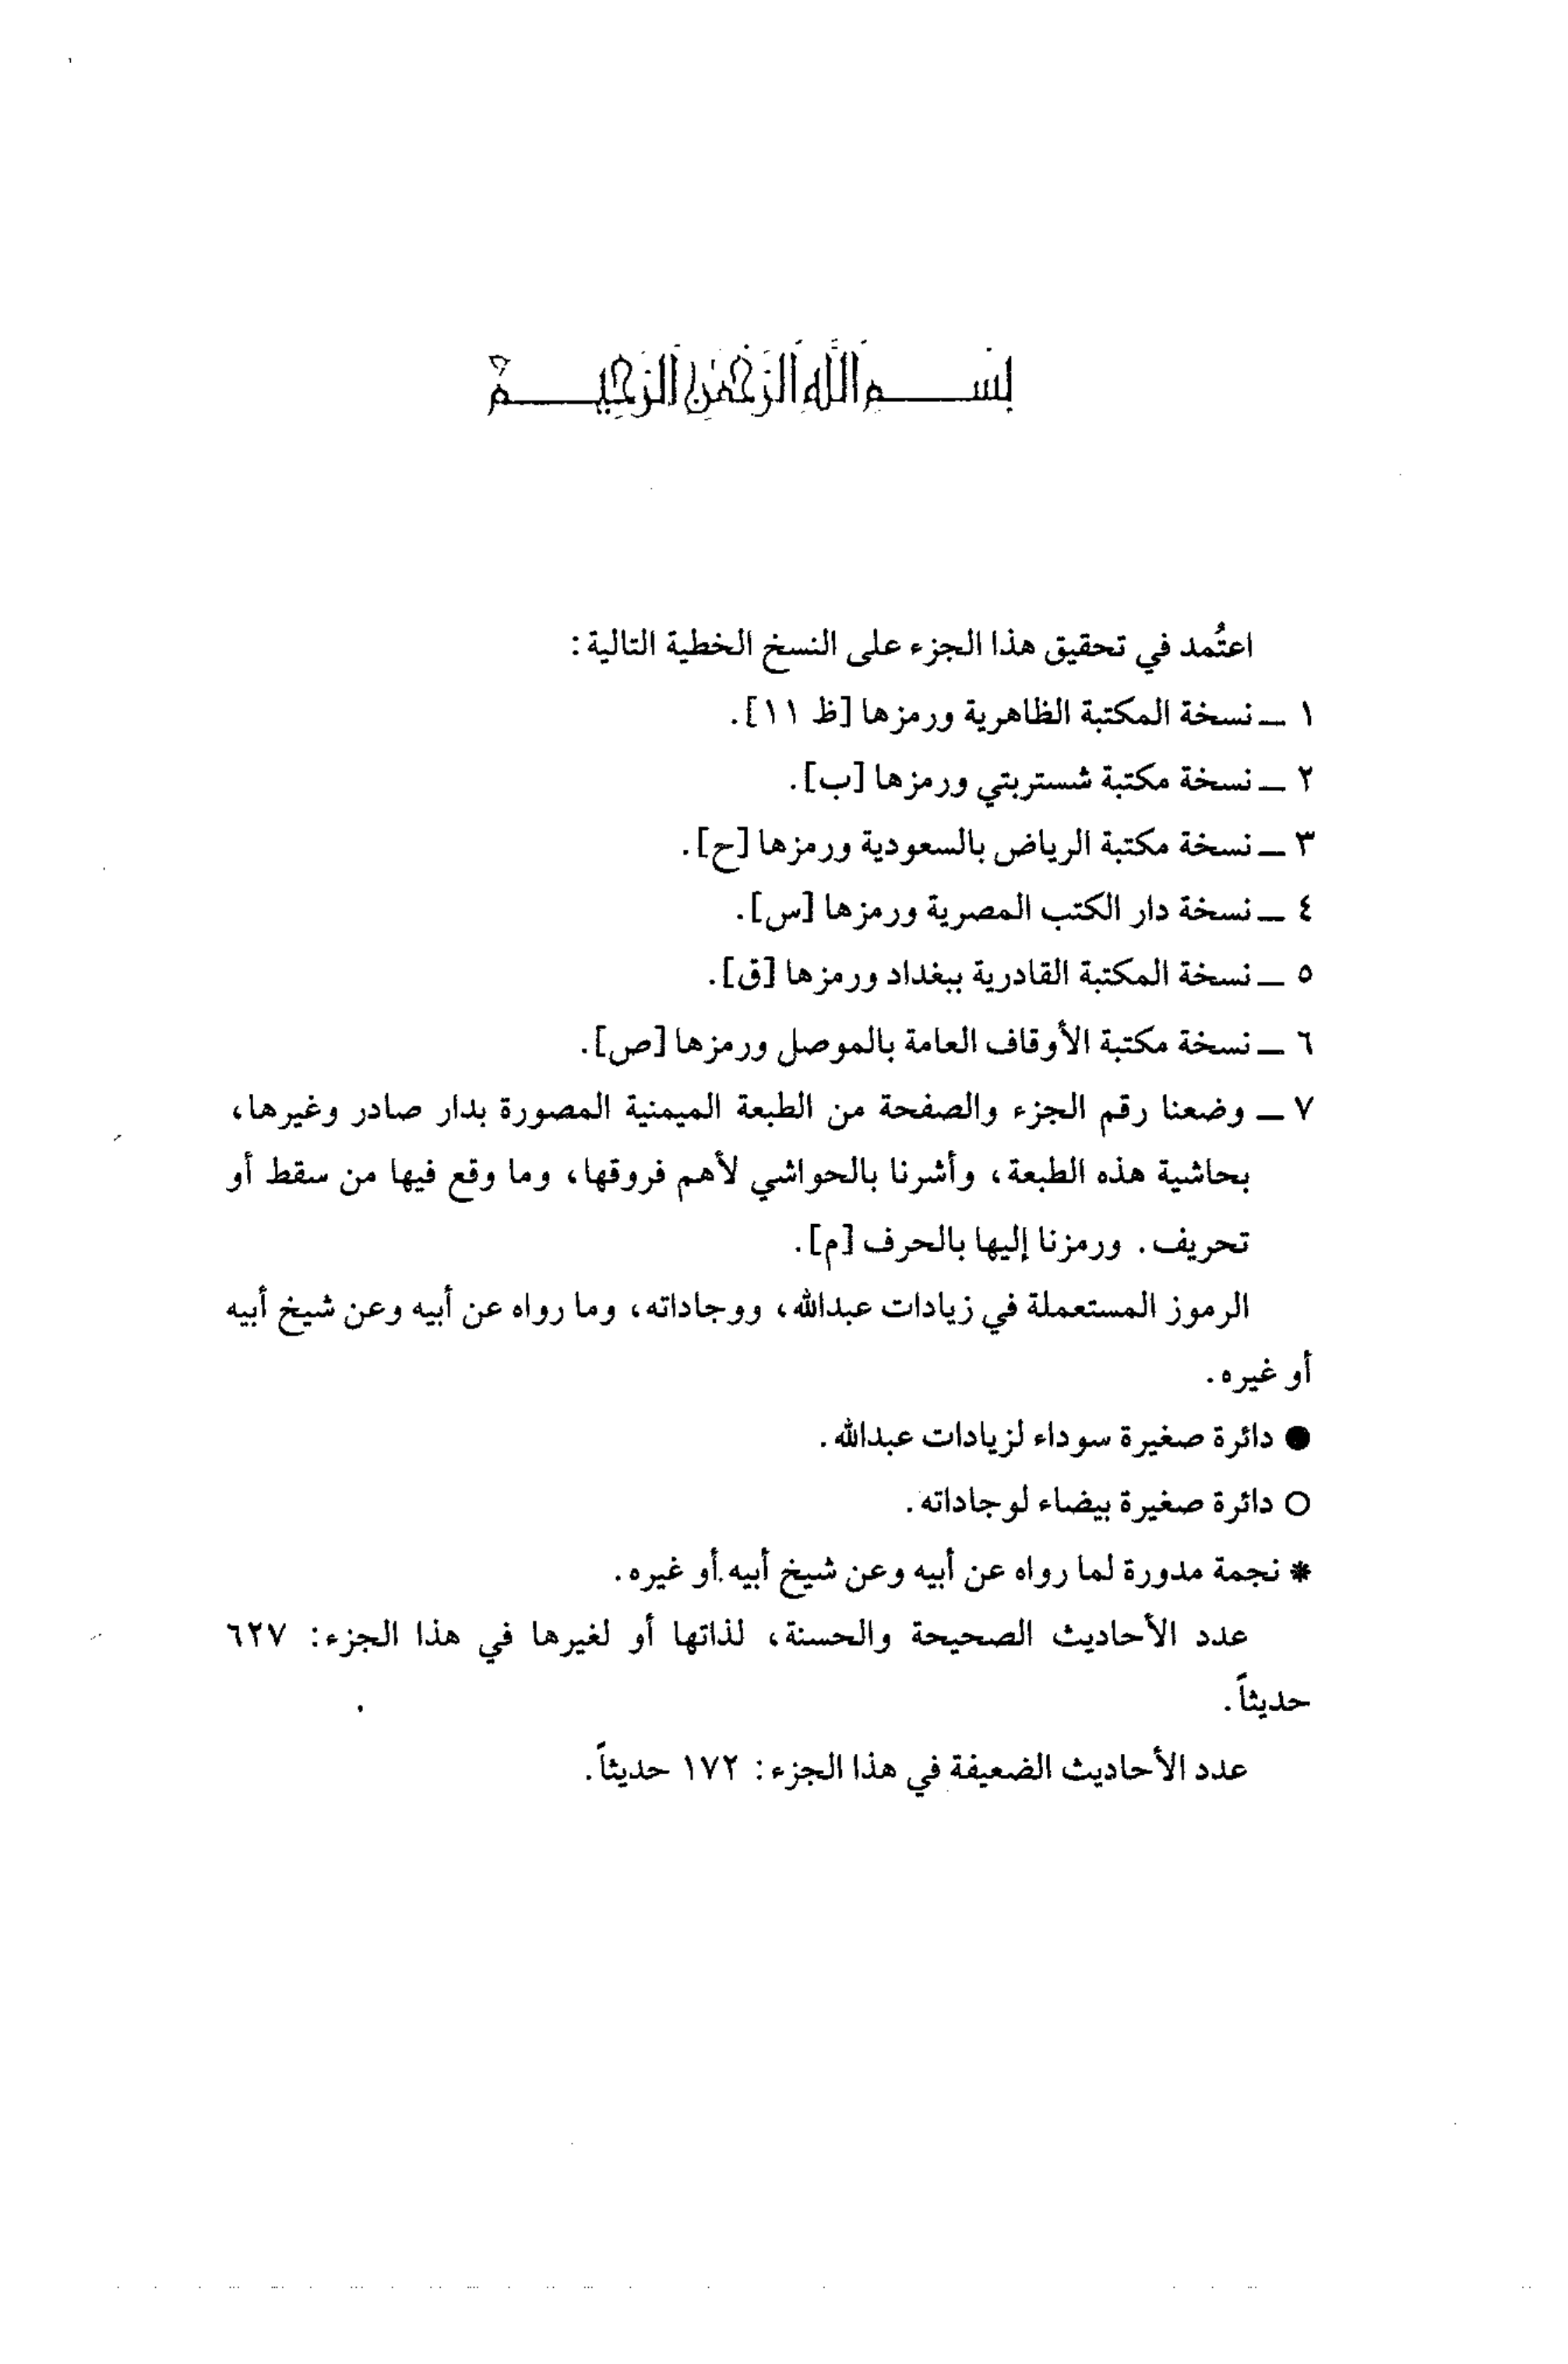 بسم الله الرحمن الرحيم
اعتُمد في تحقيق هذا الجزء على النسخ الخطية التالية:
١ – نسخة المكتبة الظاهرية ورمزها [ظ ١١].
٢ – نسخة مكتبة شستربتي ورمزها [ب].
٣ – نسخة مكتبة الرياض بالسعودية ورمزها [ح].
٤ – نسخة دار الكتب المصرية ورمزها [س].
٥ – نسخة المكتبة القادرية ببغداد ورمزها [ق].
٦ – نسخة مكتبة الأوقاف العامة بالموصل ورمزها [ص].
٧ – وضعنا رقم الجزء والصفحة من الطبعة الميمنية المصورة بدار صادر وغيرها،
بحاشية هذه الطبعة، وأشرنا بالحواشي لأهم فروقها، وما وقع فيها من سقط أو
تحريف. ورمزنا إليها بالحرف [م].
الرموز المستعملة في زيادات عبدالله، ووجاداته، وما رواه عن أبيه وعن شيخ أبيه
أو غيره.
● دائرة صغيرة سوداء لزيادات عبدالله.
○ دائرة صغيرة بيضاء لوجاداته.
* نجمة مدورة لما رواه عن أبيه وعن شيخ أبيه أو غيره.
عدد الأحاديث الصحيحة والحسنة، لذاتها أو لغيرها في هذا الجزء: ٦٢٧
حديثاً.
عدد الأحاديث الضعيفة في هذا الجزء: ١٧٢ حديثاً.